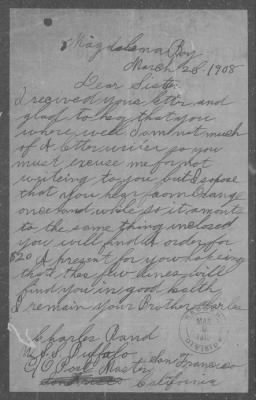 Magdalena Bay
March 28, 1908
Dear Sister
I recived your letter and
glad to hear that you
where well I am not much
of A letter writer so you
must excuse me for not
writing to you but I supose
that you hear from
once and while so it amonts
to the same thing inclosed
you will find A order for
$20 A present for you hopeing
that this few lines will
find you in good health
I remain your Brother Charles
Charles Rand
U.S.S. Buffalo
C/O Post Master San Francisco
California
MAR
DIVISION